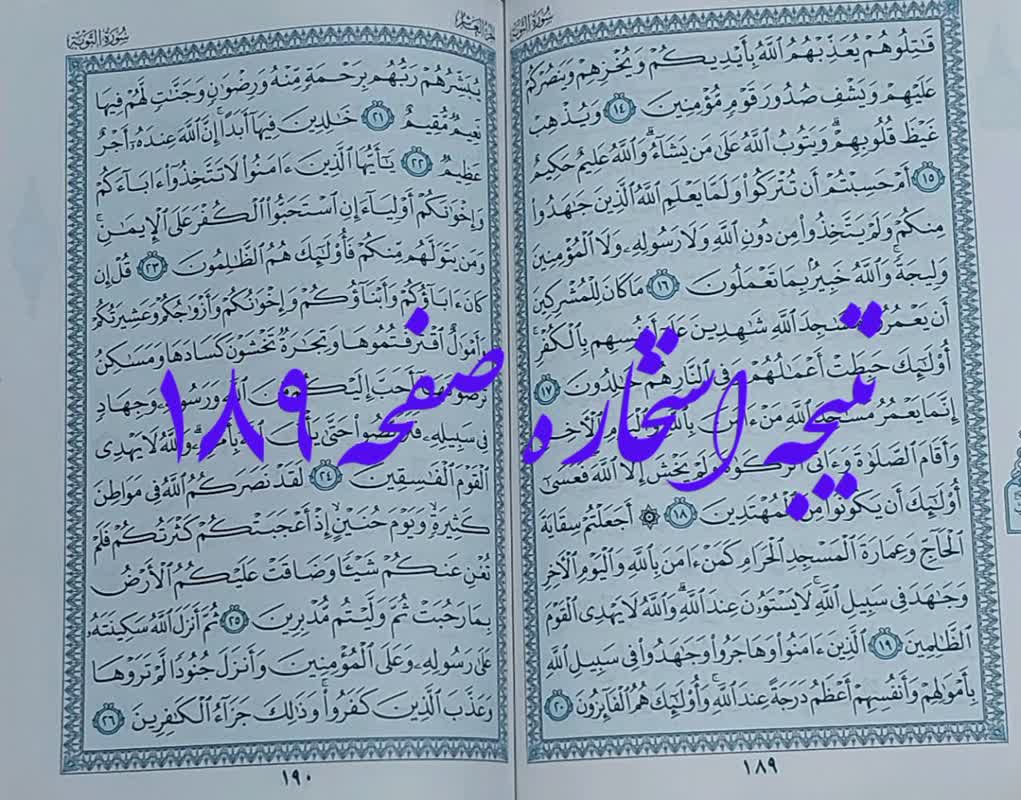 سُورَةُ التَّوْبَةِ
قَٰتِلُوهُمْ يُعَذِّبْهُمُ ٱللَّهُ بِأَيْدِيكُمْ وَيُخْزِهِمْ وَيَنصُرْكُمْ
عَلَيْهِمْ وَيَشْفِ صُدُورَ قَوْمٍ مُّؤْمِنِينَ ١٤ وَيُذْهِبْ
غَيْظَ قُلُوبِهِمْ وَيَتُوبُ ٱللَّهُ عَلَىٰ مَن يَشَآءُ وَٱللَّهُ عَلِيمٌ حَكِيمٌ
١٥ أَمْ حَسِبْتُمْ أَن تُتْرَكُوا۟ وَلَمَّا يَعْلَمِ ٱللَّهُ ٱلَّذِينَ جَٰهَدُوا۟
مِنكُمْ وَلَمْ يَتَّخِذُوا۟ مِن دُونِ ٱللَّهِ وَلَا رَسُولِهِۦ وَلَا ٱلْمُؤْمِنِينَ
وَلِيجَةً وَٱللَّهُ خَبِيرٌۢ بِمَا تَعْمَلُونَ ١٦ مَا كَانَ لِلْمُشْرِكِينَ
أَن يَعْمُرُوا۟ مَسَٰجِدَ ٱللَّهِ شَٰهِدِينَ عَلَىٰٓ أَنفُسِهِم بِٱلْكُفْرِ
أُو۟لَٰٓئِكَ حَبِطَتْ أَعْمَٰلُهُمْ وَفِى ٱلنَّارِ هُمْ خَٰلِدُونَ ١٧
إِنَّمَا يَعْمُرُ مَسَٰجِدَ ٱللَّهِ مَنْ ءَامَنَ بِٱللَّهِ وَٱلْيَوْمِ ٱلْءَاخِرِ
وَأَقَامَ ٱلصَّلَوٰةَ وَءَاتَى ٱلزَّكَوٰةَ وَلَمْ يَخْشَ إِلَّا ٱللَّهَ فَعَسَىٰٓ
أُو۟لَٰٓئِكَ أَن يَكُونُوا۟ مِنَ ٱلْمُهْتَدِينَ ١٨ ۞ أَجَعَلْتُمْ سِقَايَةَ
ٱلْحَآجِّ وَعِمَارَةَ ٱلْمَسْجِدِ ٱلْحَرَامِ كَمَنْ ءَامَنَ بِٱللَّهِ وَٱلْيَوْمِ ٱلْءَاخِرِ
وَجَٰهَدَ فِى سَبِيلِ ٱللَّهِ لَا يَسْتَوُۥنَ عِندَ ٱللَّهِ وَٱللَّهُ لَا يَهْدِى ٱلْقَوْمَ
ٱلظَّٰلِمِينَ ١٩ ٱلَّذِينَ ءَامَنُوا۟ وَهَاجَرُوا۟ وَجَٰهَدُوا۟ فِى سَبِيلِ ٱللَّهِ
بِأَمْوَٰلِهِمْ وَأَنفُسِهِمْ أَعْظَمُ دَرَجَةً عِندَ ٱللَّهِ وَأُو۟لَٰٓئِكَ هُمُ ٱلْفَآئِزُونَ ٢٠
١٨٩
سُورَةُ التَّوْبَةِ
يُبَشِّرُهُمْ رَبُّهُم بِرَحْمَةٍ مِّنْهُ وَرِضْوَٰنٍ وَجَنَّٰتٍ لَّهُمْ فِيهَا
نَعِيمٌ مُّقِيمٌ ٢١ خَٰلِدِينَ فِيهَآ أَبَدًا إِنَّ ٱللَّهَ عِندَهُۥٓ أَجْرٌ
عَظِيمٌ ٢٢ يَٰٓأَيُّهَا ٱلَّذِينَ ءَامَنُوا۟ لَا تَتَّخِذُوٓا۟ ءَابَآءَكُمْ
وَإِخْوَٰنَكُمْ أَوْلِيَآءَ إِنِ ٱسْتَحَبُّوا۟ ٱلْكُفْرَ عَلَى ٱلْإِيمَٰنِ
وَمَن يَتَوَلَّهُم مِّنكُمْ فَأُو۟لَٰٓئِكَ هُمُ ٱلظَّٰلِمُونَ ٢٣ قُلْ إِن
كَانَ ءَابَآؤُكُمْ وَأَبْنَآؤُكُمْ وَإِخْوَٰنُكُمْ وَأَزْوَٰجُكُمْ وَعَشِيرَتُكُمْ
وَأَمْوَٰلٌ ٱقْتَرَفْتُمُوهَا وَتِجَٰرَةٌ تَخْشَوْنَ كَسَادَهَا وَمَسَٰكِنُ
تَرْضَوْنَهَآ أَحَبَّ إِلَيْكُم مِّنَ ٱللَّهِ وَرَسُولِهِۦ وَجِهَادٍ
فِى سَبِيلِهِۦ فَتَرَبَّصُوا۟ حَتَّىٰ يَأْتِىَ ٱللَّهُ بِأَمْرِهِۦ وَٱللَّهُ لَا يَهْدِى
ٱلْقَوْمَ ٱلْفَٰسِقِينَ ٢٤ لَقَدْ نَصَرَكُمُ ٱللَّهُ فِى مَوَاطِنَ
كَثِيرَةٍ وَيَوْمَ حُنَيْنٍ إِذْ أَعْجَبَتْكُمْ كَثْرَتُكُمْ فَلَمْ
تُغْنِ عَنكُمْ شَيْـًٔا وَضَاقَتْ عَلَيْكُمُ ٱلْأَرْضُ
بِمَا رَحُبَتْ ثُمَّ وَلَّيْتُم مُّدْبِرِينَ ٢٥ ثُمَّ أَنزَلَ ٱللَّهُ سَكِينَتَهُۥ
عَلَىٰ رَسُولِهِۦ وَعَلَى ٱلْمُؤْمِنِينَ وَأَنزَلَ جُنُودًا لَّمْ تَرَوْهَا
وَعَذَّبَ ٱلَّذِينَ كَفَرُوا۟ وَذَٰلِكَ جَزَآءُ ٱلْكَٰفِرِينَ ٢٦
١٩٠
نتیجه استخاره صفحه ۱۸۹